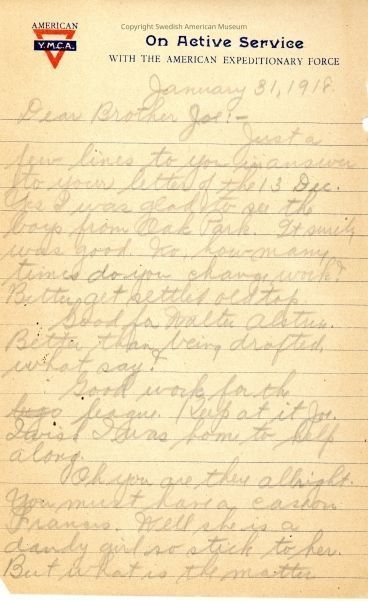 Copyright Swedish American Museum
AMERICAN
Y.M.C.A.
On Active Service
WITH THE AMERICAN EXPEDITIONARY FORCE
January 31, 1918.
Dear Brother Joe:-
Just a
few lines to you in answer
to your letter of the 13 Dec.
Yes I was glad to see the
boys from Oak Park. It surely
was good. No, how many
times do you change work?
Better get settled old top.
Good for Walter
Better than being drafted,
what say?
Good work for the
league. Keep at it Joe.
I wish I was home to help
along.
Oh you are they allright.
You must have a case on
Francis. Well she is a
dandy girl so stick to her.
But what is the matter